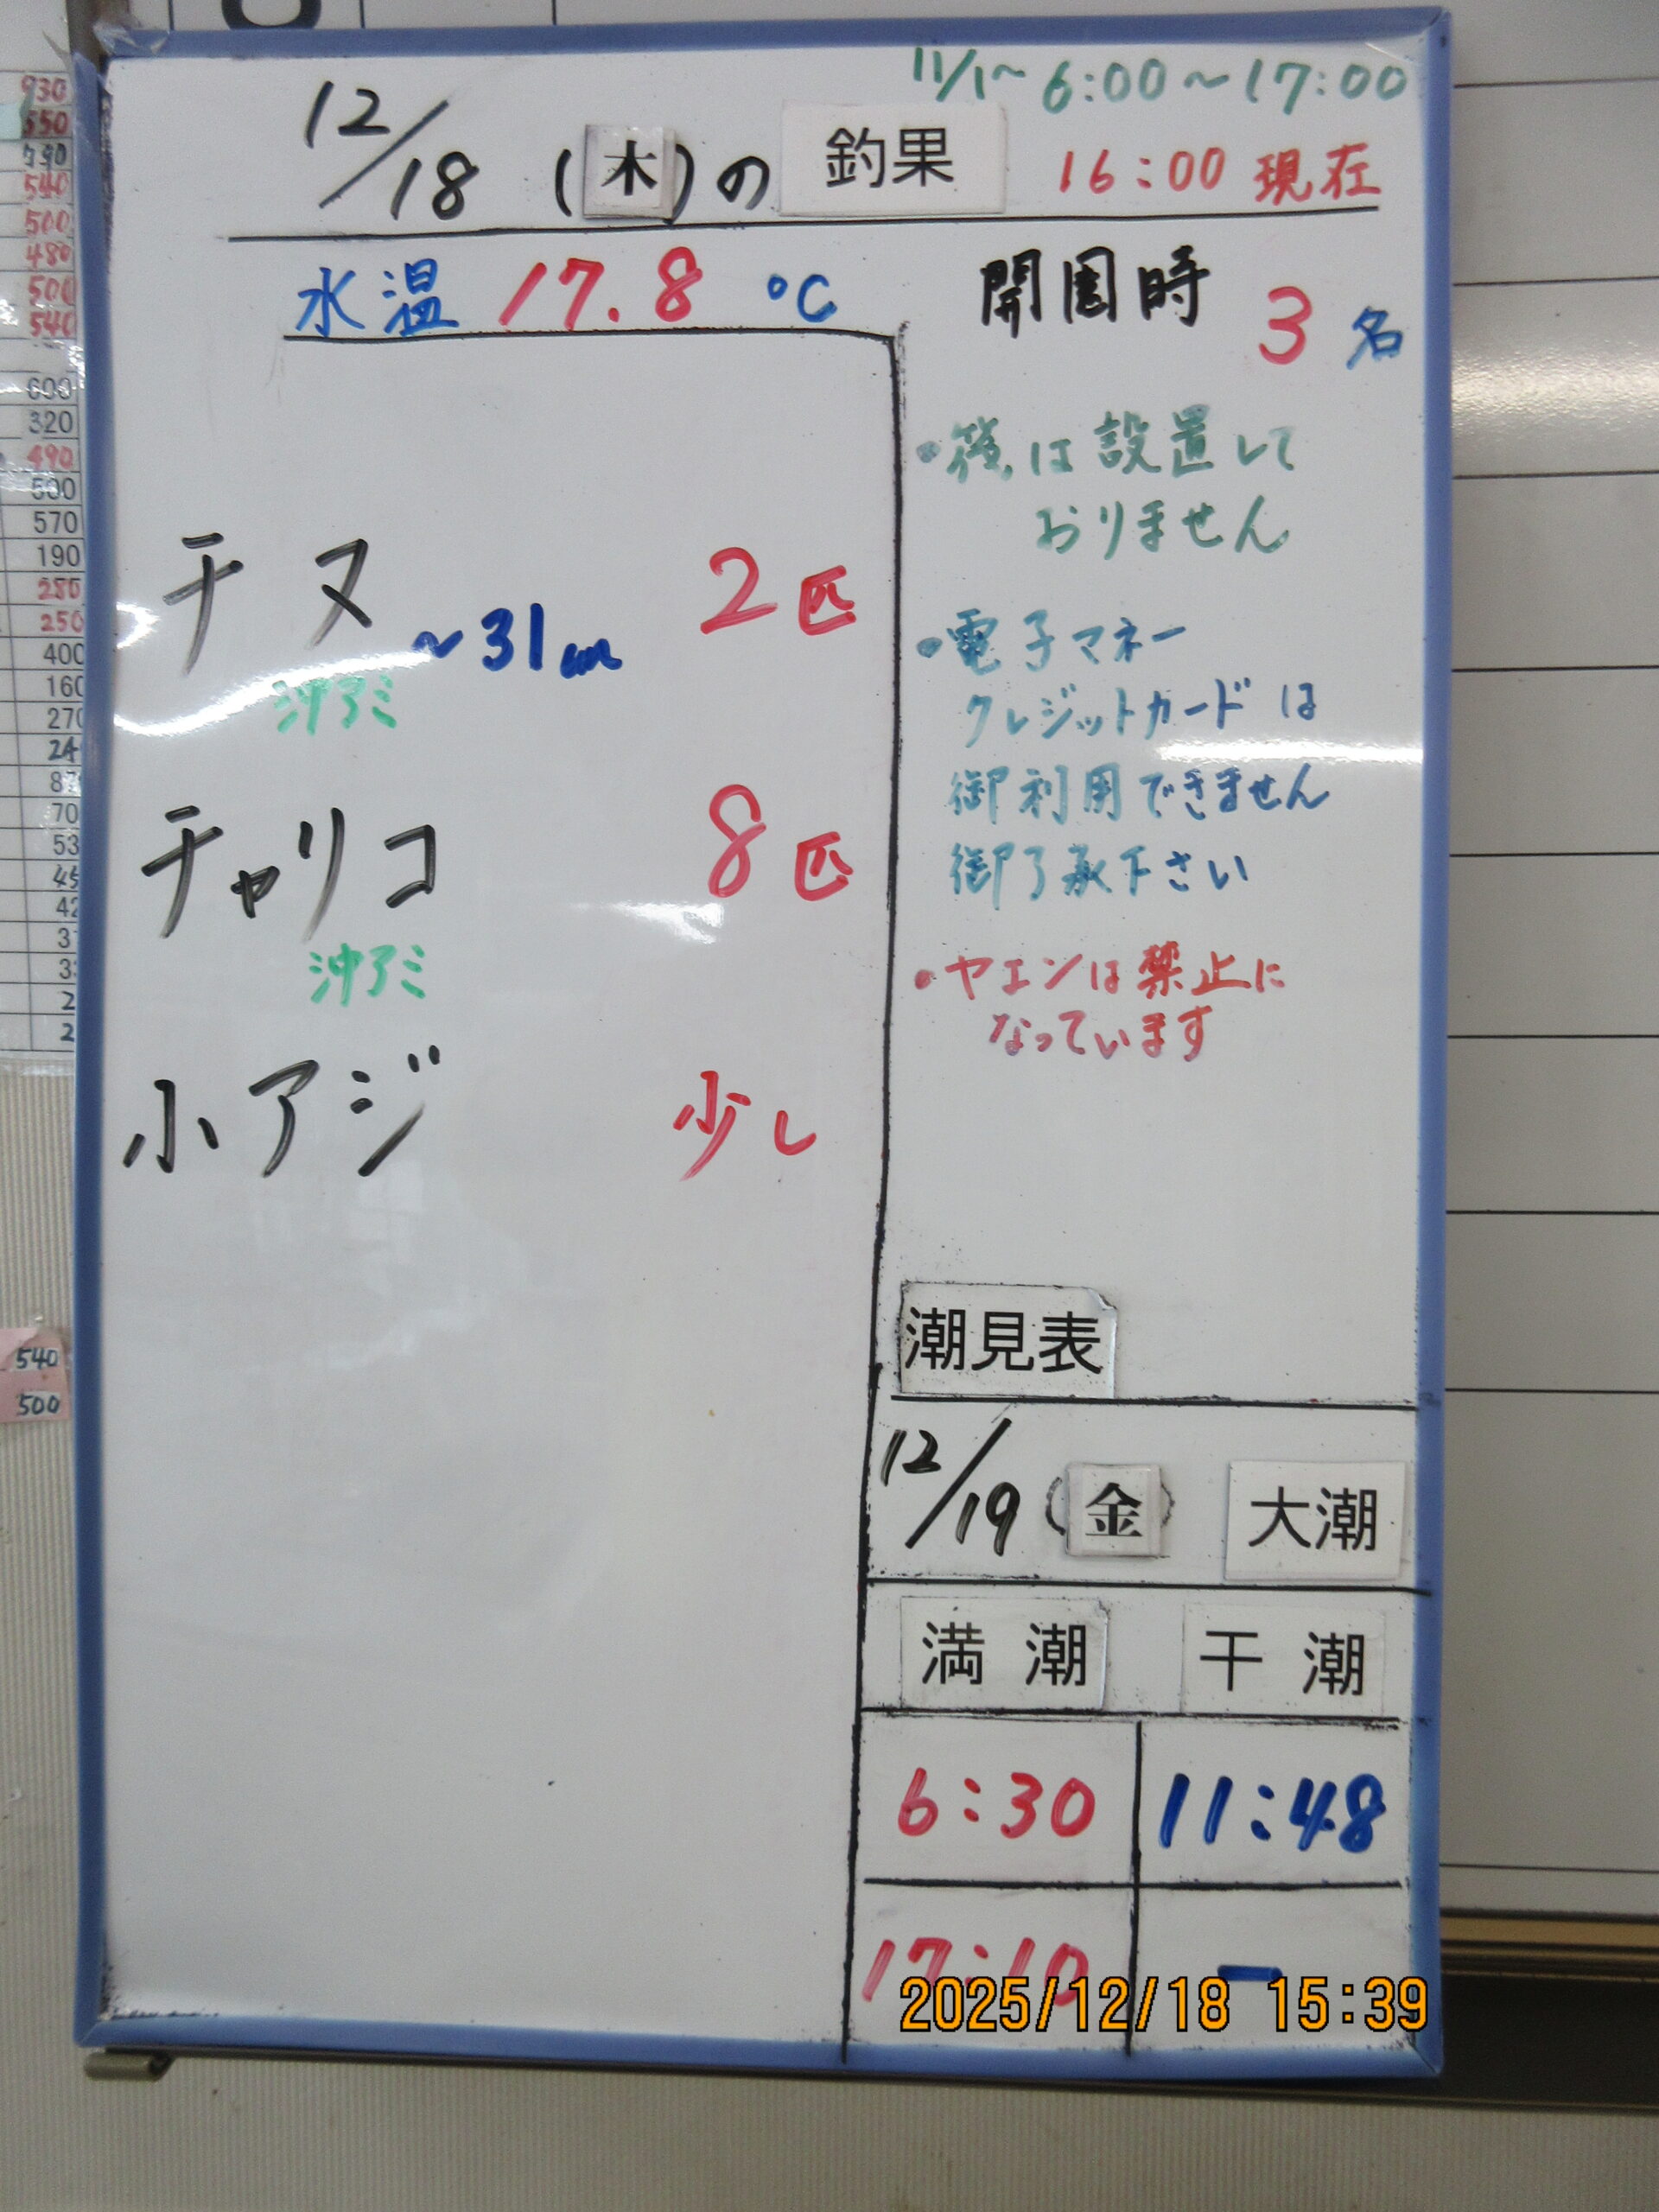 11/1～ 6:00～17:00
12/18 (木)の 釣果 16:00 現在
水温 17.8 ℃
開園時 3 名
・筏は設置して
おりません
・電子マネー
クレジットカードは
御利用できません
御了承下さい
・ヤエンは禁止に
なっています
チヌ ～31cm 2匹
沖アミ
チャリコ 8匹
沖アミ
小アジ 少し
潮見表
12/19 (金) 大潮
満潮 干潮
6:30 11:48
17:10 ー
2025/12/18 15:39
930
550
790
540
500
480
500
540
600
320
490
500
570
190
280
250
400
160
270
24
87
70
53
45
42
3
3
2
2
540
500